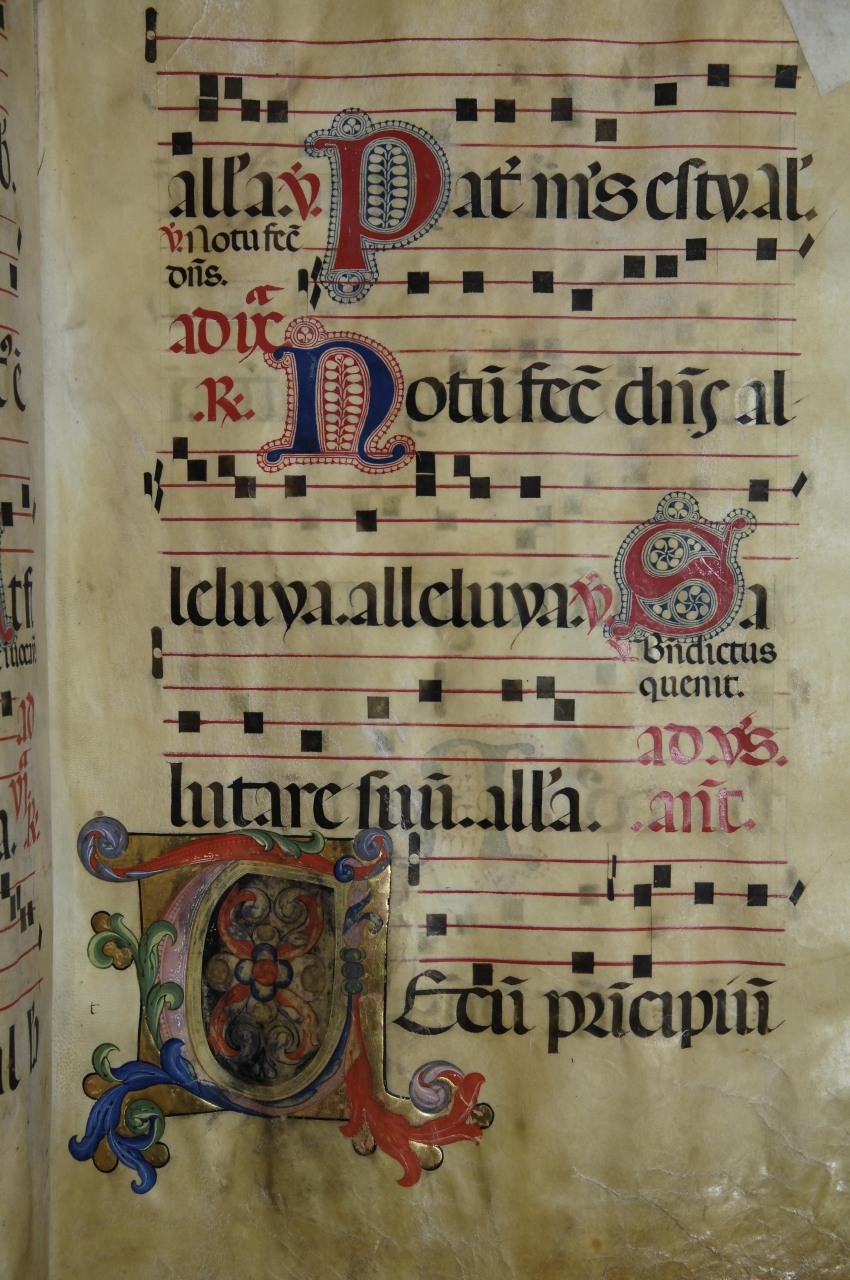 all'a. ℣. Pat̄ m's es tu. al'.
℣. Notū fec̄
dn̄s.
ad ixᵃ
.℞. Notū fec̄ dn̄s al-
leluya. alleluya. ℣. Sa
℣. Bn̄dictus
quenit.
lutare suū. all'a.
ad. v's.
.an̄t.
Tecū prīcipiū